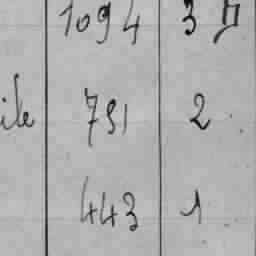 1094 3
ile 791 2
443 1